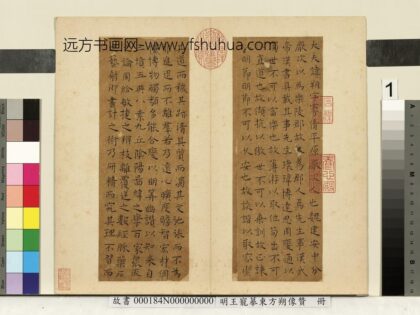 远方书画网-www.yfshuhua.com
大夫諱朔字曼倩平原厭次人也魏建安中分
厭次以為樂陵郡故又為郡人焉先生事漢武
帝漢書具載其事先生瓌瑋博達思周變通以
為濁世不可以富樂也故薄游以取位苟出不可
以直道也故頡抗以傲世傲世不可以垂訓故正諫
以明節明節不可以久安也故詼諧以取容潔
其道而穢其跡清其質而濁其文弛張而不為
邪進退而不離群若乃遠心曠度贍智宏材倜
儻博物觸類多能合變以明筭幽贊以知來自
三墳五典八索九丘陰陽圖緯之學百家眾流
之論周給敏捷之辨枝離覆逆之數經脉藥石
之藝射御書計之術乃研精而究其理不習而
1
故書 000184N000000000 明王寵摹東方朔像贊 冊